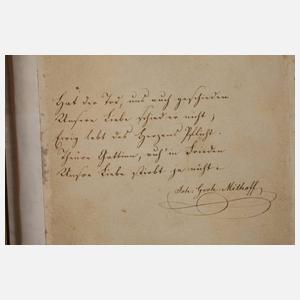 Hat der Tod, uns auch geschieden
Unsere Liebe schied er nicht,
Ewig lebt des Herzens Pflicht.
Theure Gattinn, ruh' in Frieden
Unsre Liebe stirbt ja nicht.
Joh: Grch: Mithoff